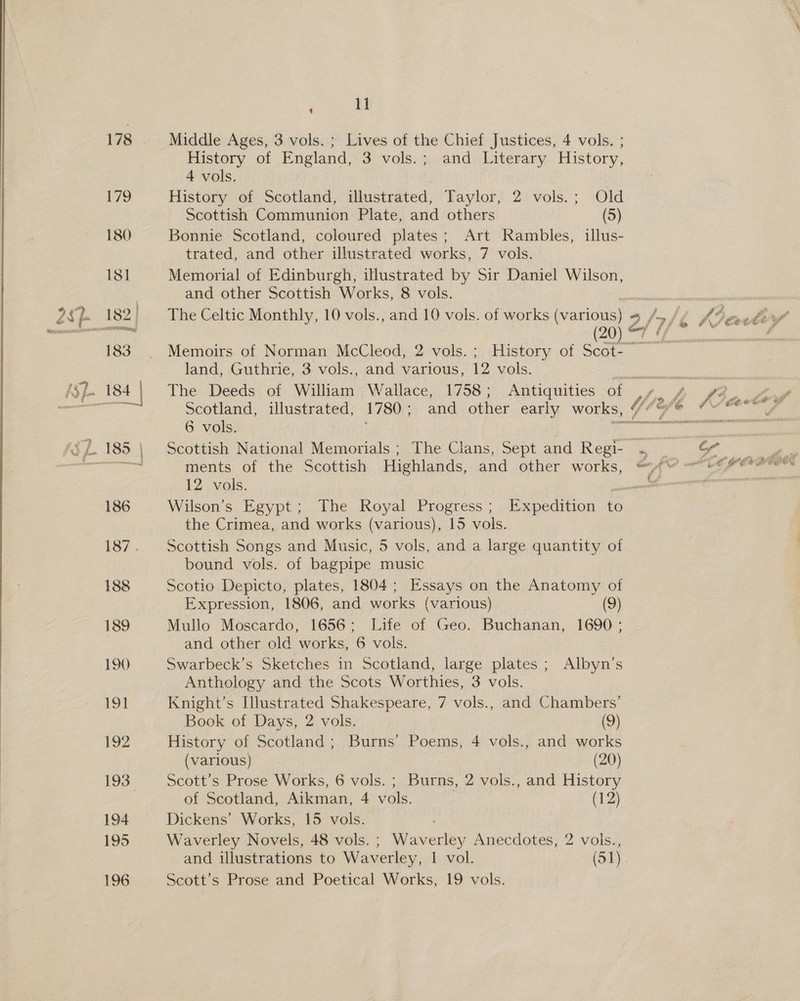 11
178 Middle Ages, 3 vols. ; Lives of the Chief Justices, 4 vols. ;
History of England, 3 vols. ; and Literary History,
4 vols.
179 History of Scotland, illustrated, Taylor, 2 vols. ; Old
Scottish Communion Plate, and others (5)
180 Bonnie Scotland, coloured plates ; Art Rambles, illus-
trated, and other illustrated works, 7 vols.
181 Memorial of Edinburgh, illustrated by Sir Daniel Wilson,
and other Scottish Works, 8 vols.
182 The Celtic Monthly, 10 vols., and 10 vols. of works (various)
(20)
183 Memoirs of Norman McCleod, 2 vols. ; History of Scot-
land, Guthrie, 3 vols., and various, 12 vols.
184 The Deeds of William Wallace, 1758 ; Antiquities of
Scotland, illustrated, 1780 ; and other early works,
6 vols.
185 Scottish National Memorials ; The Clans, Sept and Regi-
ments of the Scottish Highlands, and other works,
12 vols.
186 Wilson's Egypt ; The Royal Progress ; Expedition to
the Crimea, and works (various), 15 vols.
187 . Scottish Songs and Music, 5 vols, and a large quantity of
bound vols. of bagpipe music
188 Scotio Depicto, plates, 1804 ; Essays on the Anatomy of
Expression, 1806, and works (various) (9)
189 Mullo Moscardo, 1656 ; Life of Geo. Buchanan, 1690 ;
and other old works, 6 vols.
190 Swarbeck's Sketches in Scotland, large plates ; Albyn's
Anthology and the Scots Worthies, 3 vols.
191 Knight's Illustrated Shakespeare, 7 vols., and Chambers'
Book of Days, 2 vols. (9)
192 History of Scotland ; Burns' Poems, 4 vols., and works
(various) (20)
193 Scott's Prose Works, 6 vols. ; Burns, 2 vols., and History
of Scotland, Aikman, 4 vols. (12)
194 Dickens' Works, 15 vols.
195 Waverley Novels, 48 vols. ; Waverley Anecdotes, 2 vols.,
and illustrations to Waverley, 1 vol. (51)
196 Scott's Prose and Poetical Works, 19 vols.